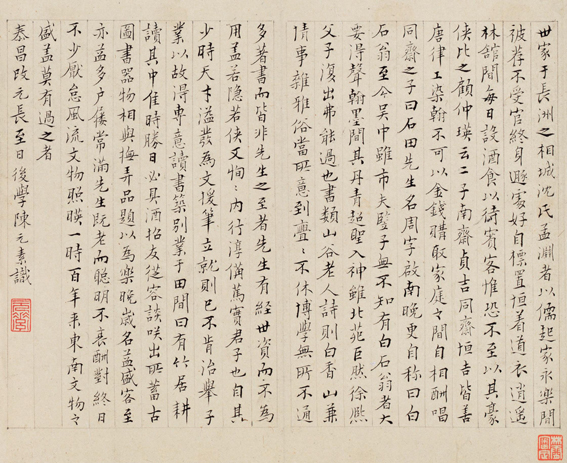 世家于長洲之相城沈氏孟淵者以儒起家永樂間
被荐不受官終身遯家好自標置恒着道衣逍遥
林舘間每日設酒食以待賓客惟恐不至以其豪
俠比之顧仲瑛云二子南齋貞吉同齋恒吉皆善
唐律工染翰不可以金錢購取家庭之間自相酬唱
同齋之子曰石田先生名周字啟南晚更自稱曰白
石翁至今吴中雖市夫豎子無不知有白石翁者大
要得聲翰墨間其丹青超聖入神雖北苑巨然徐熈
父子復出弗能過也書類山谷老人詩則白香山兼
情事雜雅俗當所意到亹〻不休博學無所不通
多著書而皆非先生之至者先生有經世資而不為
用盖若隐若俠又恂〻内行淳備篤實君子也自其
少時天才溢發為文援筆立就則已不肯治舉子
業以故得専意讀書築別業于田間曰有竹居耕
讀其中佳時勝日必具酒招友從容談咲出所蓄古
圖書器物相與撫弄品題以為樂晚嵗名益盛客至
亦益多户屨常滿先生既老而聰明不衰酬對終日
不少厭怠風流文物照暎一時百年来東南文物之
盛盖莫有過之者
泰昌改元長至日後學陳元素識